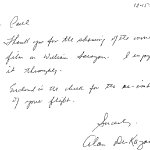 10-15
Carl
Thank you for the showing of the
film on William Saroyan. I enjoy
it thoroughly.
Enclosed is the check for the
of your flight.
Sincerely,
Alan